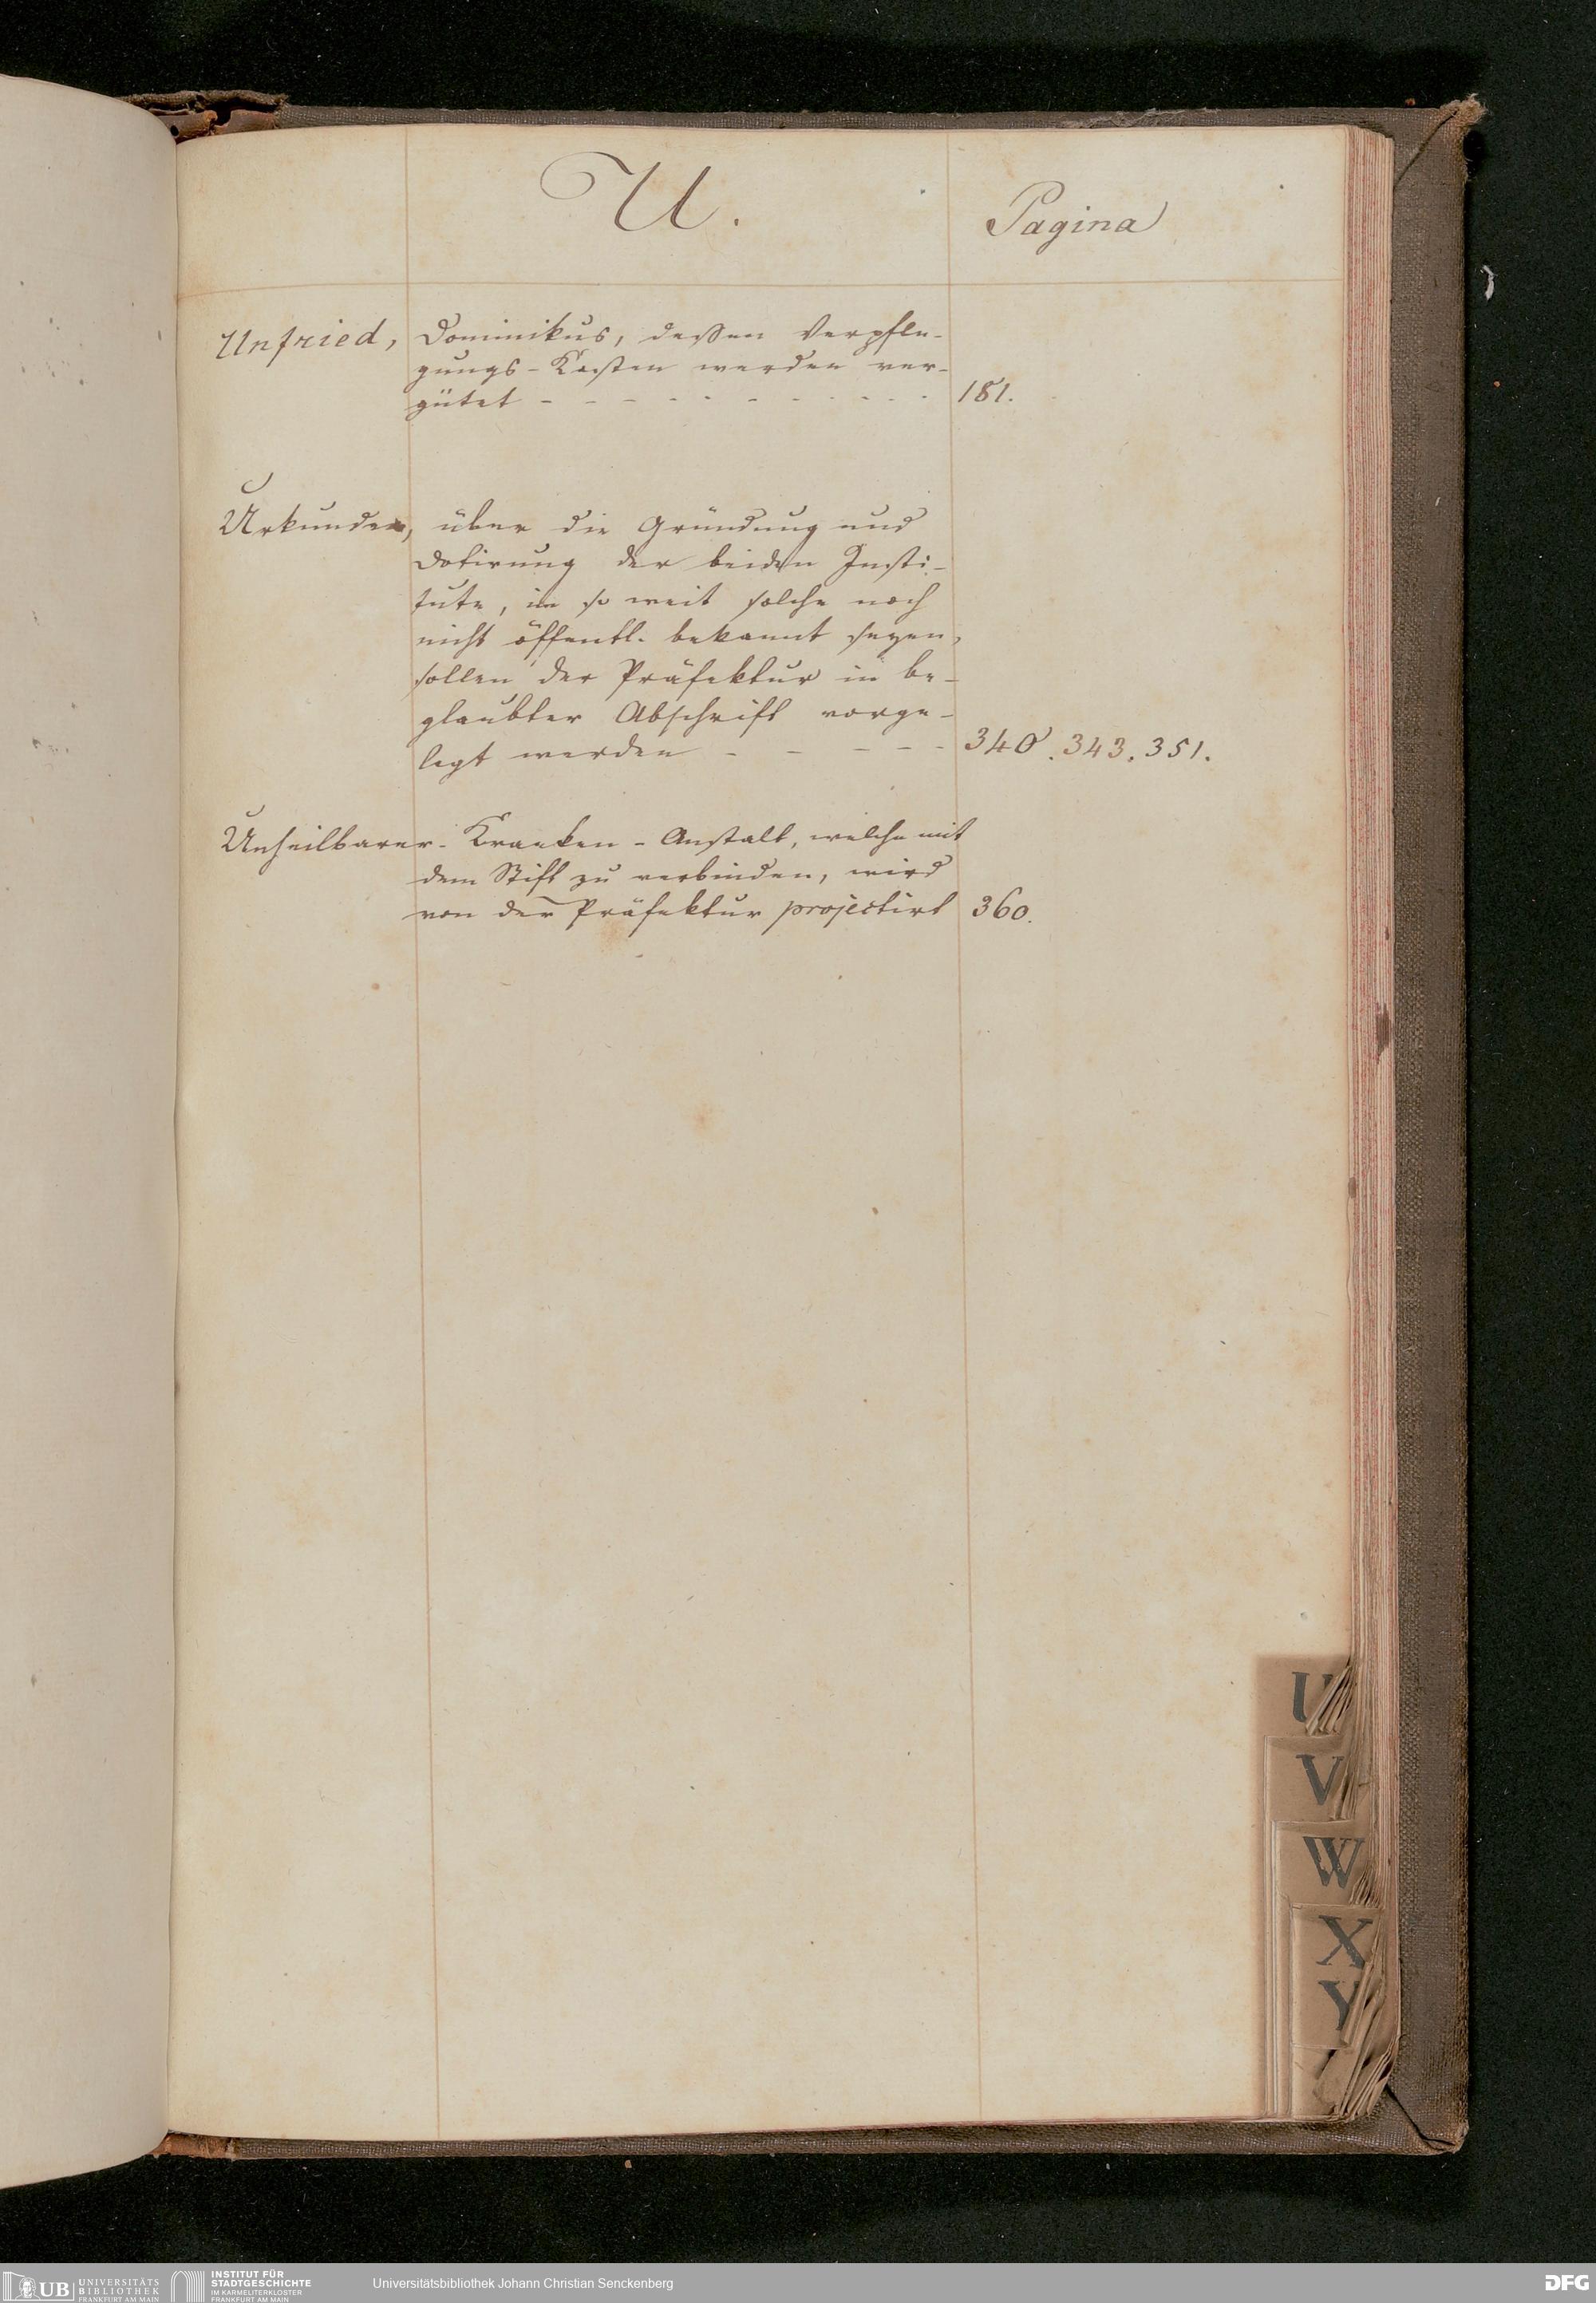 U.
Pagina
Unfried, Dominikus, deßen Verpfle-
gungs-Kosten werden ver-
gütet - - - - - - - - - - 181.
Urkunden, über die Gründung und
Dotirung der beiden Insti-
tute, in so weit solche noch
nicht öffentl. bekannt seyen,
sollen der Präfektur in be-
glaubter Abschrift vorge-
legt werden - - - - - 340. 343. 351.
Unheilbarer-Kranken-Anstalt, welche mit
dem Stift zu verbinden, wird
von der Präfektur projectirt 360.
U
V
W
X
Y
UB UNIVERSITÄTS
BIBLIOTHEK
FRANKFURT AM MAIN
INSTITUT FÜR
STADTGESCHICHTE
IM KARMELITERKLOSTER
FRANKFURT AM MAIN
Universitätsbibliothek Johann Christian Senckenberg
DFG